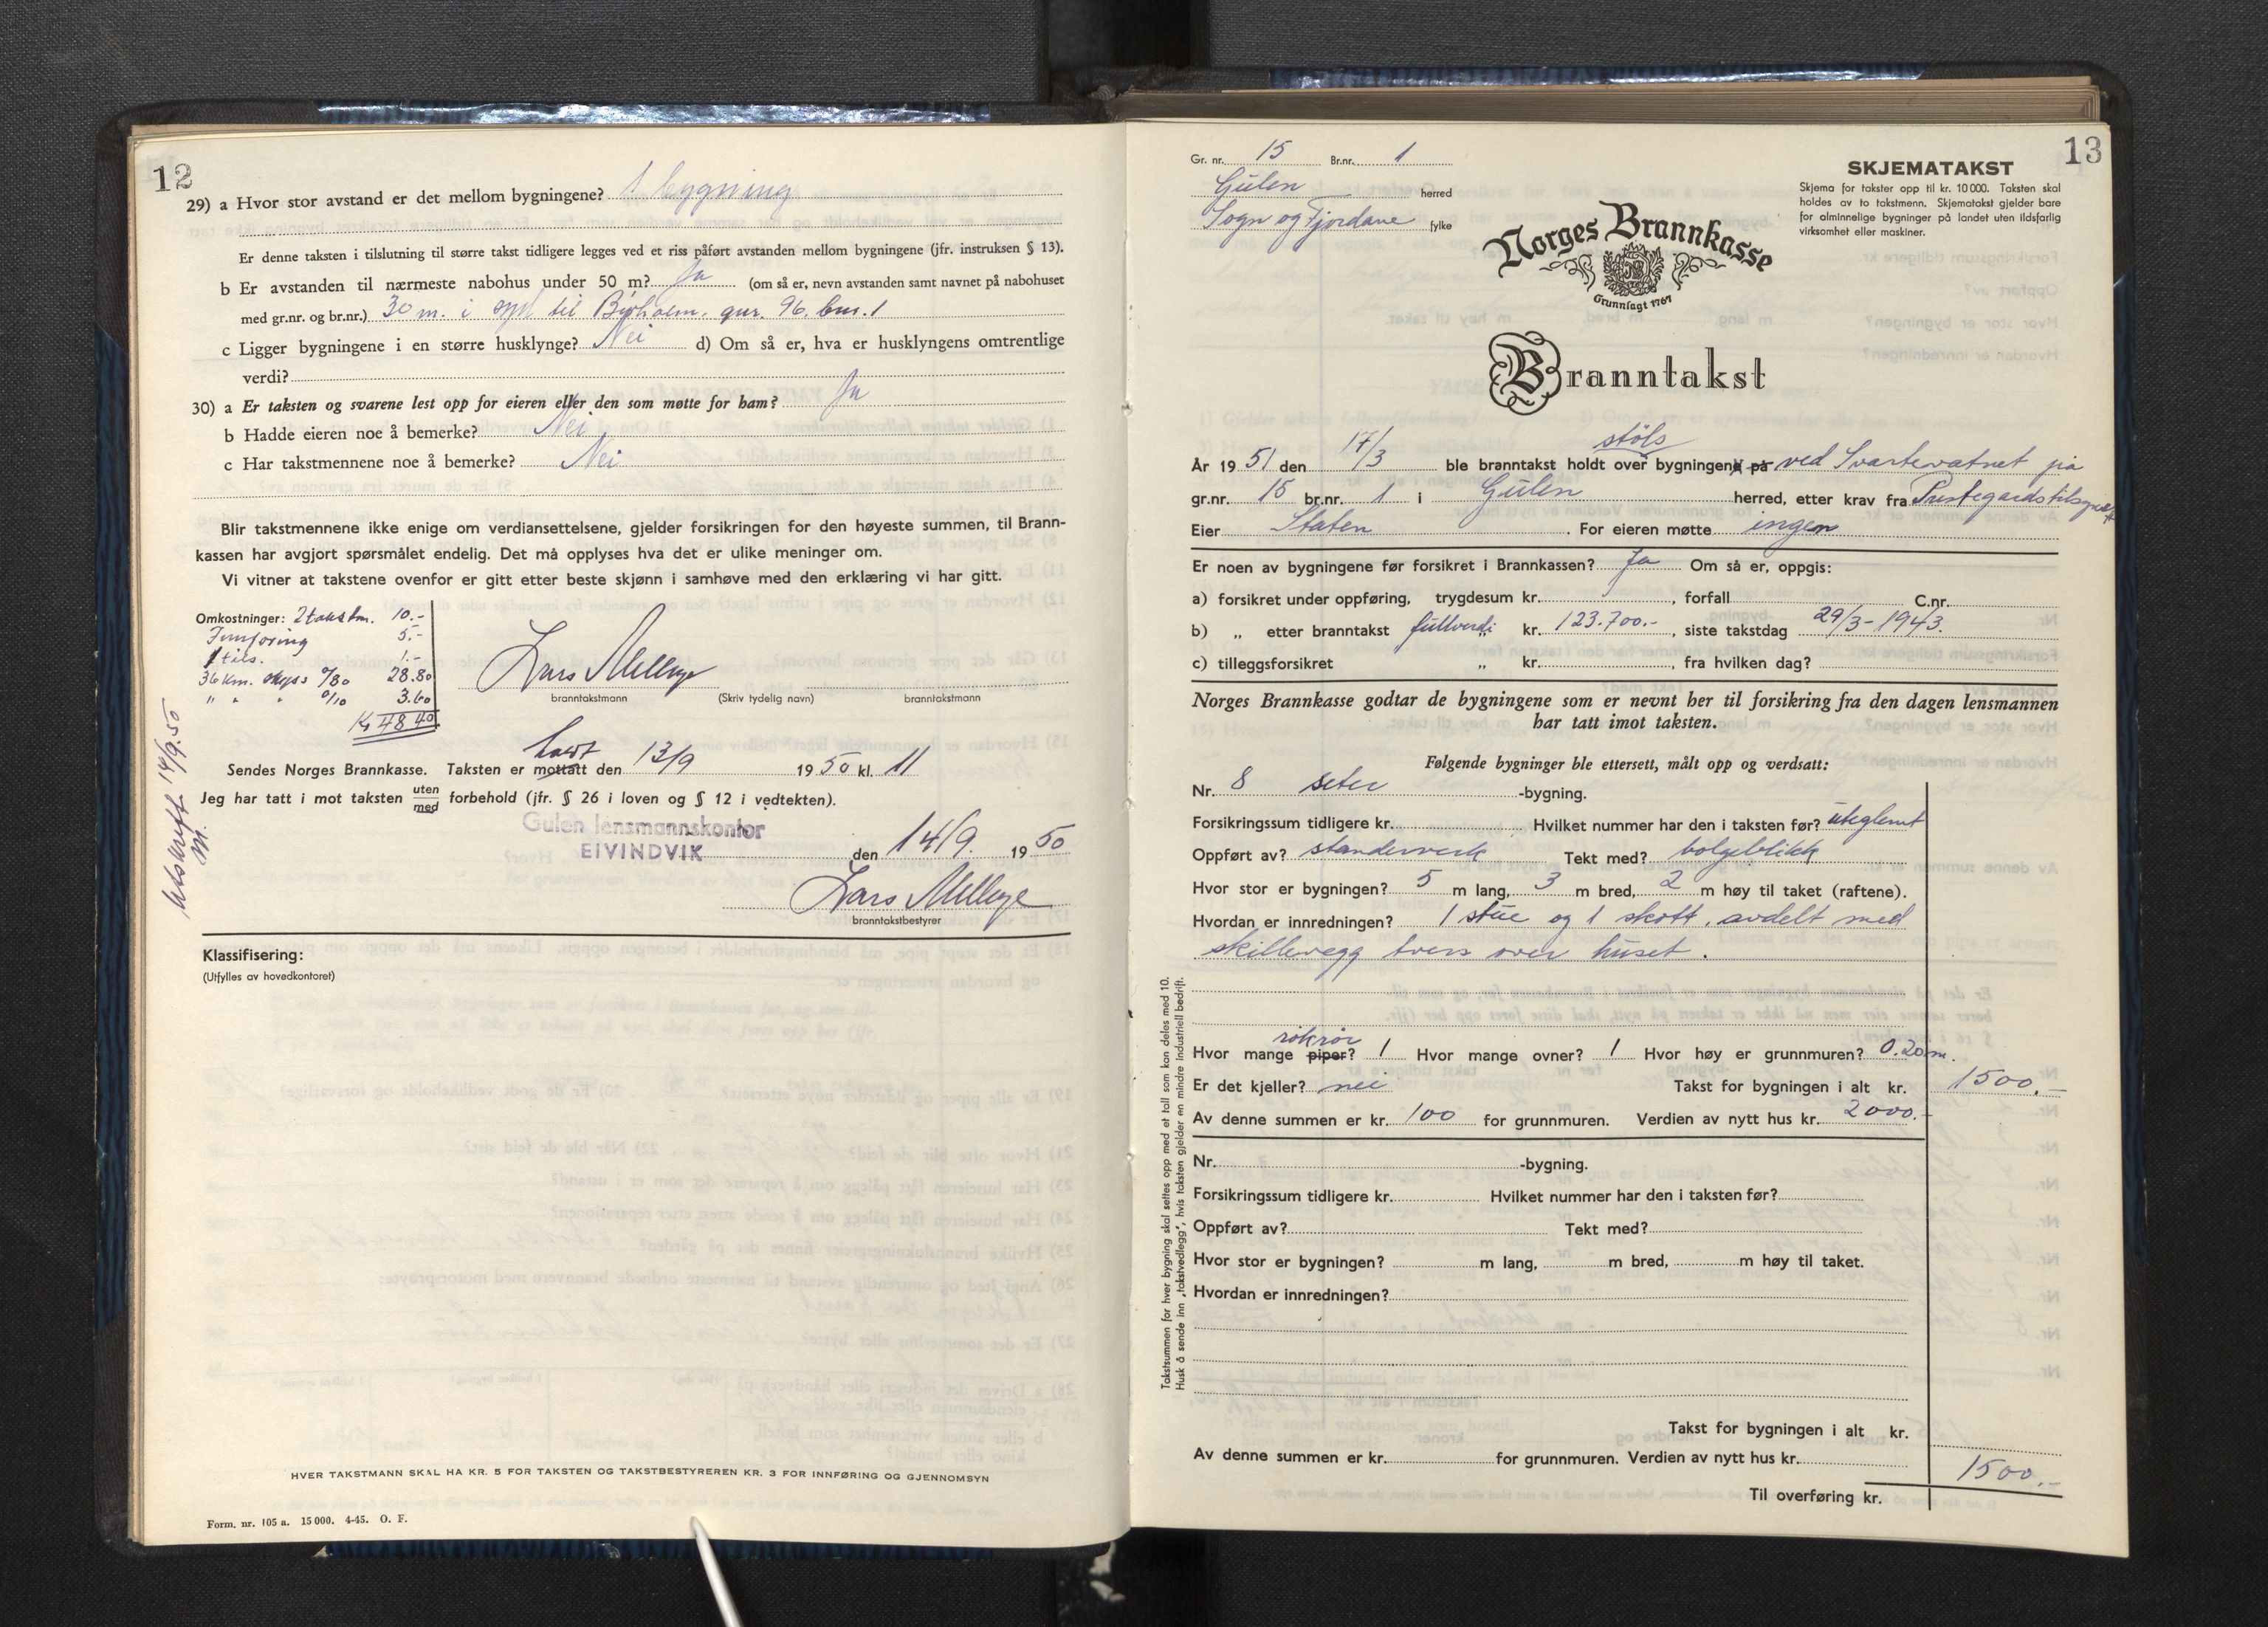 12
29) a Hvor stor avstand er det mellom bygningene? 1 bygning
Er denne taksten i tilslutning til større takst tidligere legges ved et riss påført avstanden mellom bygningene (jfr. instruksen § 13).
b Er avstanden til nærmeste nabohus under 50 m? Ja (om så er, nevn avstanden samt navnet på nabohuset
med gr.nr. og br.nr.) 30 m. i syd til gnr. 96, bnr. 1
c Ligger bygningene i en større husklynge? Nei d) Om så er, hva er husklyngens omtrentlige
verdi?
30) a Er taksten og svarene lest opp for eieren eller den som møtte for ham? Ja
b Hadde eieren noe å bemerke? Nei
c Har takstmennene noe å bemerke? Nei
Blir takstmennene ikke enige om verdiansettelsene, gjelder forsikringen for den høyeste summen, til Brann-
kassen har avgjort spørsmålet endelig. Det må opplyses hva det er ulike meninger om.
Vi vitner at takstene ovenfor er gitt etter beste skjønn i samhøve med den erklæring vi har gitt.
Omkostninger: 2 takstm. 10.-
Innføring 5.-
1 tils. 1.-
36 km. skyss 0/80 28.80
" " " 0/10 3.60
Kr 48.40
Lars Mellbye
branntakstmann (Skriv tydelig navn) branntakstmann
Sendes Norges Brannkasse. Taksten er mottatt den 13/9 1950 kl. 11
Jeg har tatt i mot taksten uten/med forbehold (jfr. § 26 i loven og § 12 i vedtekten).
Gulen lensmannskontor
EIVINDVIK den 14/9. 1950
Lars Mellbye
branntakstbestyrer
Utskrift 14/9.50
M.
Klassifisering:
(Utfylles av hovedkontoret)
HVER TAKSTMANN SKAL HA KR. 5 FOR TAKSTEN OG TAKSTBESTYREREN KR. 3 FOR INNFØRING OG GJENNOMSYN
Form. nr. 105 a. 15 000. 4-45. O. F.
13
Gr. nr. 15 Br.nr. 1
Gulen herred
Sogn og Fjordane fylke
SKJEMATAKST
Skjema for takster opp til kr. 10 000. Taksten skal
holdes av to takstmenn. Skjematakst gjelder bare
for alminnelige bygninger på landet uten ildsfarlig
virksomhet eller maskiner.
Norges Brannkasse
Grunnlagt 1767
Branntakst
støls
År 1951 den 17/3 ble branntakst holdt over bygningene på ved Svartevatnet på
gr.nr. 15 br.nr. 1 i Gulen herred, etter krav fra Prestegardstilsynet
Eier Staten. For eieren møtte ingen
Er noen av bygningene før forsikret i Brannkassen? Ja Om så er, oppgis:
a) forsikret under oppføring, trygdesum kr. , forfall C.nr.
b) „ etter branntakst fullverdi „ kr. 123.700.- , siste takstdag 29/3-1943.
c) tilleggsforsikret „ kr. , fra hvilken dag?
Norges Brannkasse godtar de bygningene som er nevnt her til forsikring fra den dagen lensmannen
har tatt imot taksten.
Følgende bygninger ble ettersett, målt opp og verdsatt:
Nr. 8 seter -bygning.
Forsikringssum tidligere kr. Hvilket nummer har den i taksten før? uteglemt
Oppført av? standerverk Tekt med? bølgeblikk
Hvor stor er bygningen? 5 m lang, 3 m bred, 2 m høy til taket (raftene).
Hvordan er innredningen? 1 stue og 1 skott, avdelt med
skillevegg tvers over huset.
rökrör
Hvor mange piper? 1 Hvor mange ovner? 1 Hvor høy er grunnmuren? 0.20 m.
Er det kjeller? nei Takst for bygningen i alt kr. 1500.-
Av denne summen er kr. 100 for grunnmuren. Verdien av nytt hus kr. 2000.-
Nr. -bygning.
Forsikringssum tidligere kr. Hvilket nummer har den i taksten før?
Oppført av? Tekt med?
Hvor stor er bygningen? m lang, m bred, m høy til taket.
Hvordan er innredningen?
Takst for bygningen i alt kr.
Av denne summen er kr. for grunnmuren. Verdien av nytt hus kr.
1500.-
Til overføring kr.
Takstsummen for hver bygning skal settes opp med et tall som kan deles med 10.
Husk å sende inn „takstvedlegg", hvis taksten gjelder en mindre industriell bedrift.